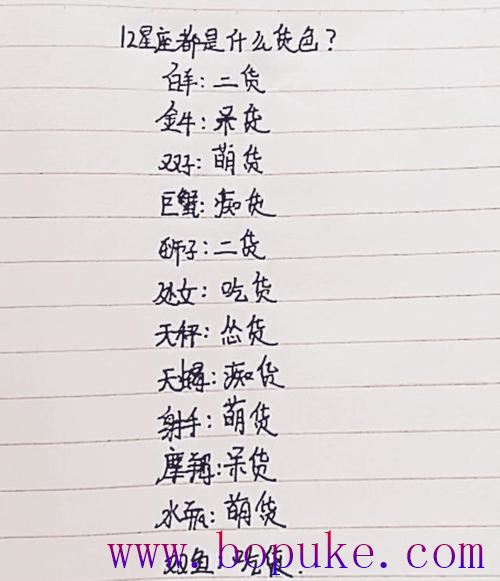 12星座都是什么货色?
白羊:二货
金牛:呆货
双子:萌货
巨蟹:痴货
狮子:二货
处女:吃货
天秤:怂货
天蝎:痴货
射手:萌货
摩羯:呆货
水瓶:萌货
双鱼:吃货
www.bopuke.com